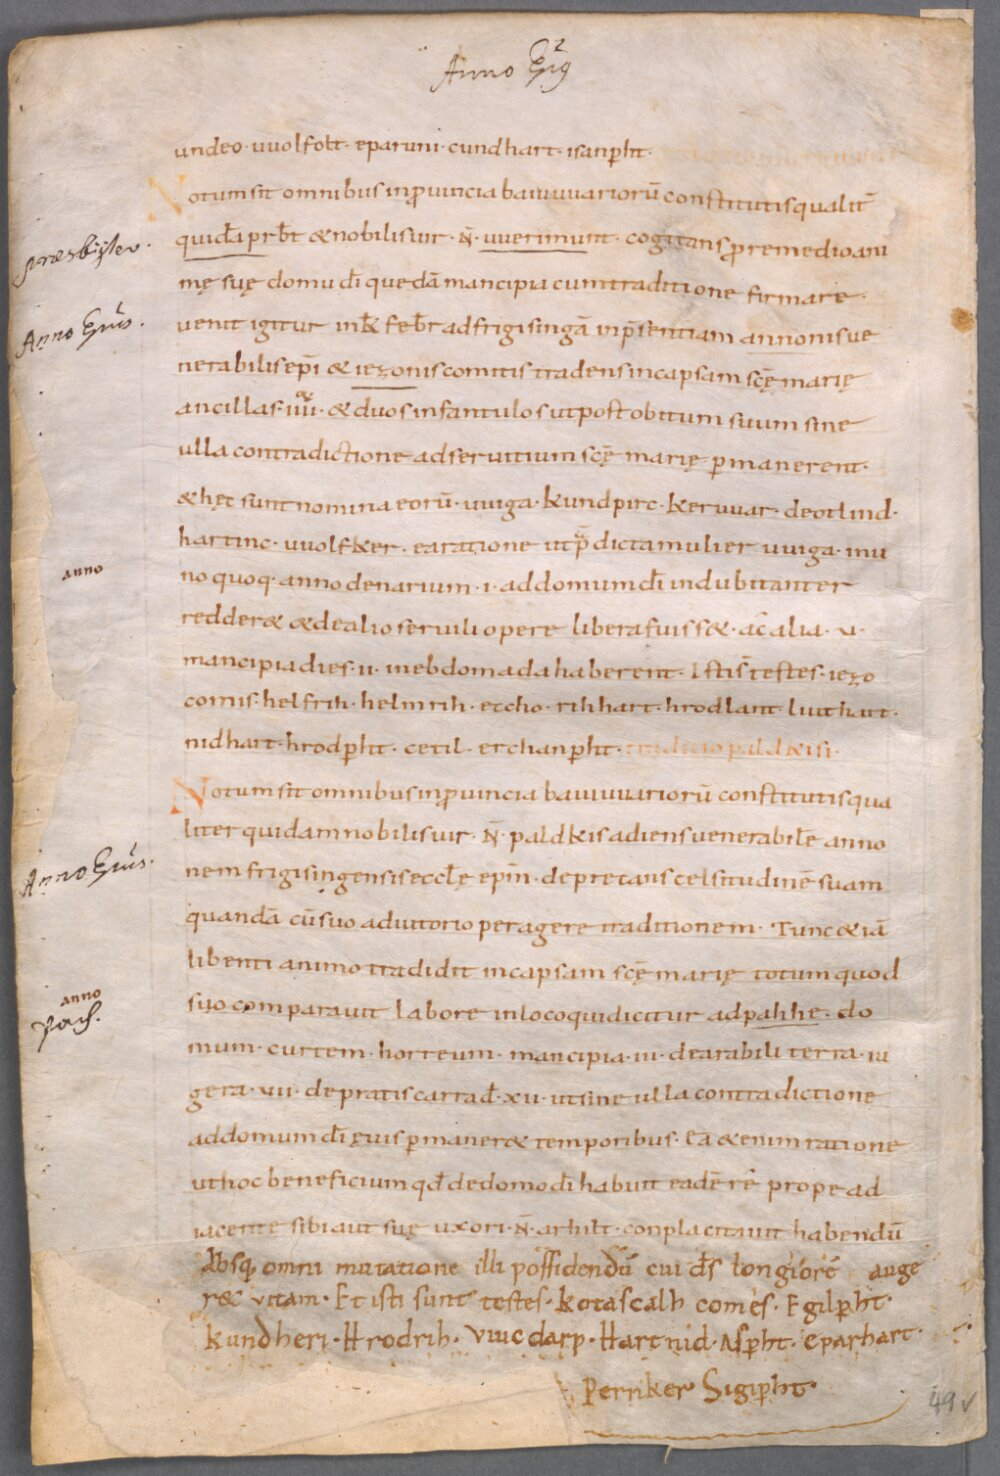 Anno Epūs
undeo · uuolfolt · eparuni · cundhart · isanp̄ht ·
Notum sit omnibus in puincia baiuuuariorū constitutis qualit̄
quidā prb̄t & nobilis uir · N̄ · uuerimunt · cogitans p remedio ani
mę suę domui dī quedā mancipia cum traditione firmare ·
uenit igitur in kł febr̄ ad frigisingā in p̄sentiam annonis ue
nerabilis ep̄i & iezonis comitis tradens in capsam scę̄ marię
ancillas · iiii · & duos infantulos ut post obitum suum sine
ulla contradictione ad seruitium scę̄ marię pmanerent ·
& hęc sunt nomina eorū · uuiga · kundpirc · keruuar · deotlind ·
hartinc · uuolfker · ea ratione ut p̄dicta mulier uuiga · in u
no quoq · anno denarium · i · ad domum dī indubitanter
redder& & de alio seruili opere libera fuiss& · ac̄ alia · u ·
mancipia dies · ii · in ebdomada haberent · Isti s̄ testes · iezo
comis · helfrih · helmrih · etcho · rihhart · hrodlant · liuthart ·
nidhart · hrodp̄ht · cetil · erchanp̄ht · traditio paldkisi ·
Notum sit omnibus in puincia baiuuuariorū constitutis qua
liter quidam nobilis uir · N̄ · paldkis adiens uenerabilē anno
nem frigisingensis eccłę ep̄m · deprecans celsitudinē suam
quandā cū suo adiutorio peragere traditionem · Tunc &iā
libenti animo tradidit in capsam scę̄ marię totum quod
suo comparauit labore in loco qui dicitur ad pahhe · do
mum · curtem · horreum · mancipia · iii · de arabili terra · iu
gera · uii · de pratis carrad̄ · xu · ut sine ulla contradictione
ad domum dī ęuis pmaner& temporibus · Eā &enim ratione
ut hoc beneficium qd̄ de domo dī habuit eadē rē prope ad
iacente sibi aut suę uxori · N̄ · arhilt · conplacitauit habendū
Absq omni mutatione illi possidendū cui ds̄ longiorē auge
r& vitam · Et isti sunt testes · kotascalh comes · Egilp̄ht ·
kundheri · Hrodrih · Vuicdarp · Hartnid · Asp̄ht · Eparhart ·
Perriker Sigip̄ht ·
præsbijter ·
Anno Epūs ·
anno
Anno Epūs ·
anno
Pach.
49v